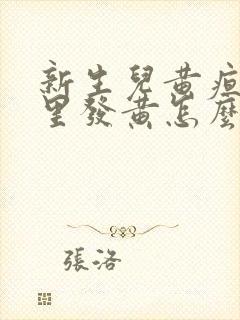 新生兒黃疸
里發黃怎麼
張洛